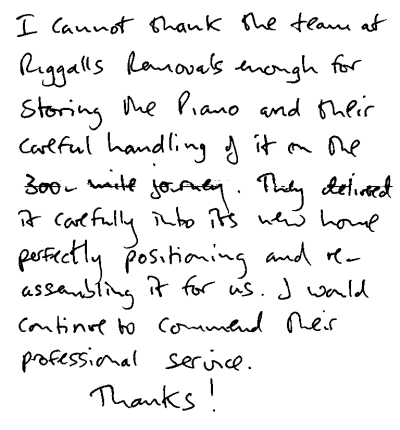 I cannot thank the team at
Riggalls Removals enough for
storing the Piano and their
careful handling of it on the
300-mile journey. They delivered
it carefully into its new home
perfectly positioning and re-
assembling it for us. I would
continue to commend their
professional service.
Thanks!